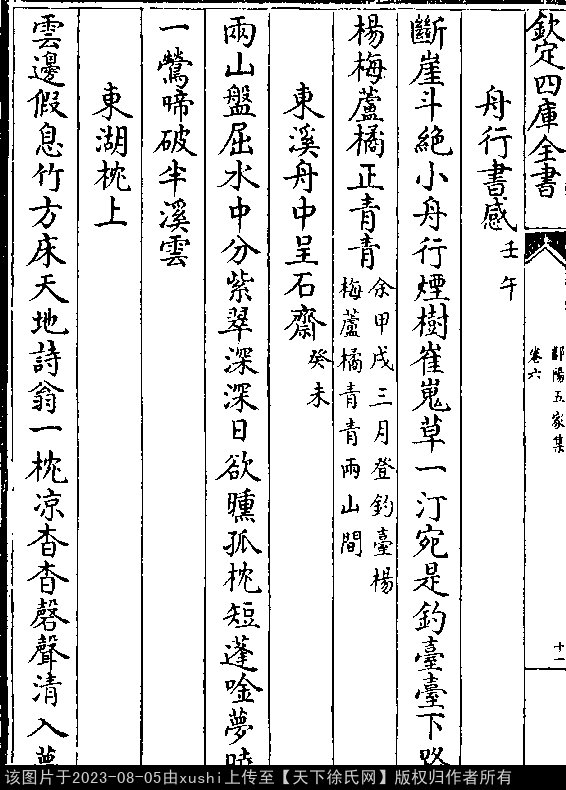 欽定四庫全書
鄱陽五家集
卷六
十一
舟行書感壬午
斷崖斗絶小舟行煙樹崔嵬草一汀宛是釣臺臺下路
楊梅蘆橘正青青余甲戌三月登釣臺楊
梅蘆橘青青兩山間
東溪舟中呈石齋癸未
兩山盤屈水中分紫翠深深日欲曛孤枕短蓬唫夢
一鶯啼破半溪雲
東湖枕上
雲邊假息竹方床天地詩翁一枕凉杳杳磬聲清入
该图片于2023-08-05由xushi上传至【天下徐氏网】版权归作者所有